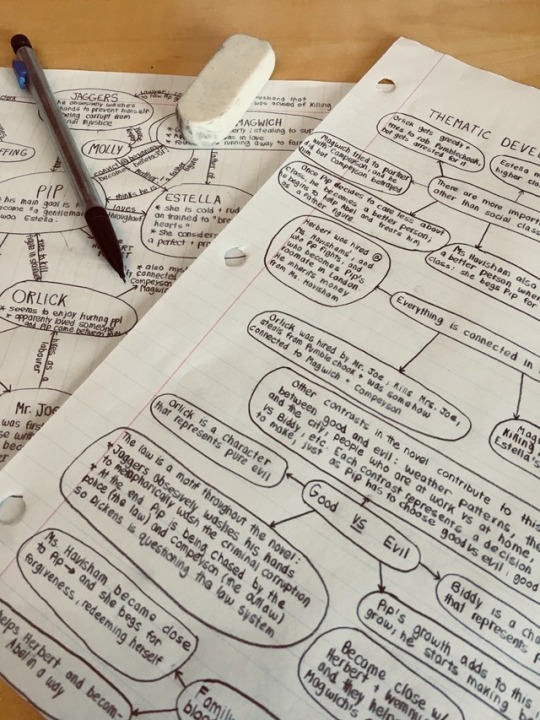 JAGGERS
he obsessively washes
hands to prevent himself
being corrupt from
injustice
husband that
was accused of killing
MAGWICH
stealing to
in love
running away to
MOLLY
PIP
his main goal is
become "a gentleman
woo Estella-
thinks he is
loves
throughout
ESTELLA
* she is cold + rude
an trained to "break
hearts"
* she considers
a perfect +
* also
connected
Compeyson
Magwich
ORLICK
* seems to enjoy hurting ppl
* apparently loved someone
and Pip came between
hires as a
labourer
Mr. Joe
was first
THEMATIC DEVE
Orlick gets greedy +
tries to rob Pumblechook,
but gets arrested for it
Estella
higher class
Magwich tried to partner
with Compeyson; and he
did but Compeyson betrayed
him
There are more impor
other than social clas
Once Pip decides to care less about
class, he becomes a better person;
he begins to help Abel and treats him
as a father figure
Ms. Havisham also
a better person when
class: she begs Pip for
Herbert was hired @
Ms. Havishams, and
Pip fights, and
who becomes Pip's
roomate in London.
He inherits money
from Ms. Havisham
Everything is connected in
Orlick was hired by Mr. Joe; kills Mrs. Joe,
steals from Pumblechook + was somehow
connected to Magwich + Compeyson
Mag
killing
Estella's
Other contrasts in the novel contribute to this
between good and evil: weather patterns, the
and the city, people who are at work vs at home,
vs Biddy, etc. Each contrast represents a decision
to make, just as Pip has to choose good vs evil
Orlick is a character
that represents pure evil
Good vs Evil
The law is a motif throughout the novel:
* Jaggers obsesively washes his hands
to metaphorically wash the criminal corruption
* in the end, Pip is being chased by the
police (the law) and compeyson (the outlaw)
so Dickens is questioning the law system
Biddy is a cha
that represents p
Ms. Havisham became close
to Pip → and she begs for
forgiveness, redeeming herself
Pip's growth adds to this
grow, he starts making be
Became close w/
Herbert + Wemmick
and they help
Magwich's
helps Herbert and becom-
Abel in a way
Family